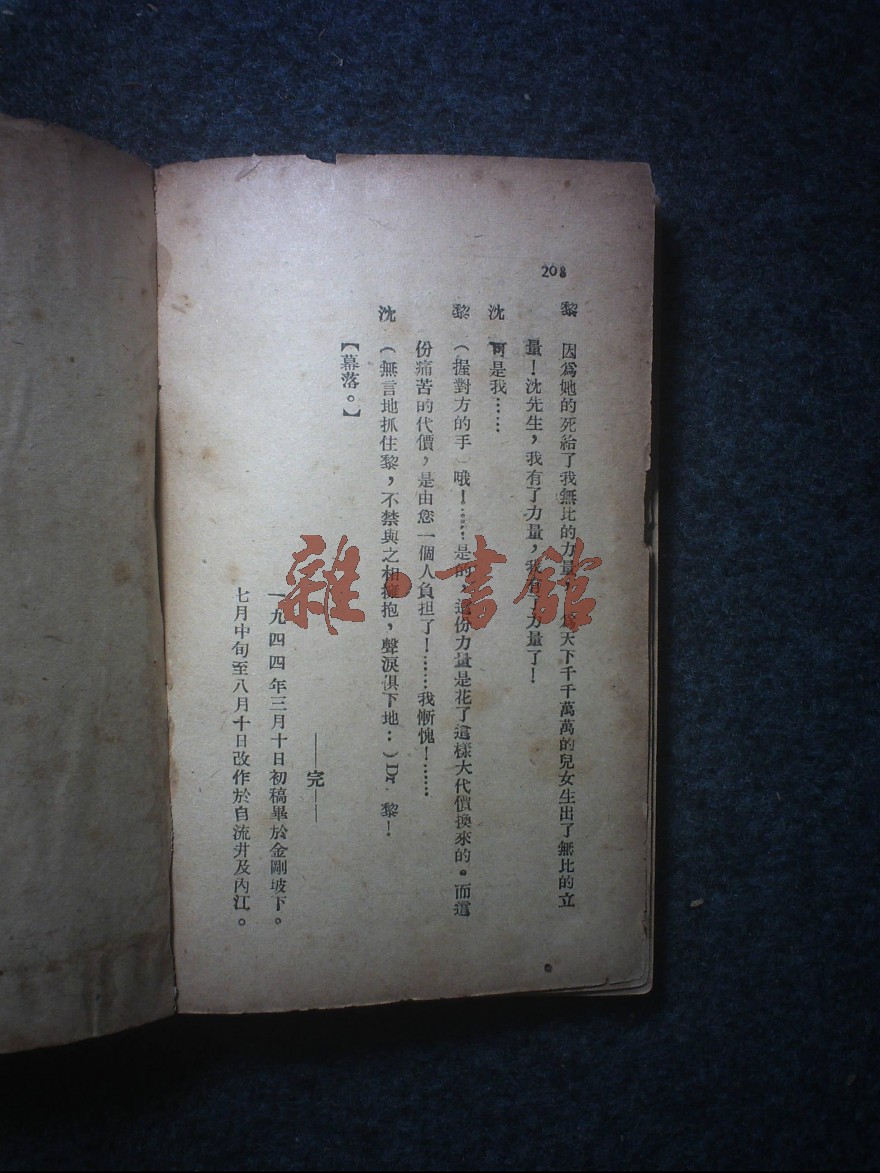 208
黎　因爲她的死給了我無比的力量，爲天下千千萬萬的兒女生出了無比的立
量！沈先生，我有了力量，我有了力量了！
沈　可是我……
黎（握對方的手）哦！……是的，這份力量是花了這樣大代價換來的。而這
份痛苦的代價，是由您一個人負担了！……我慚愧！……
沈（無言地抓住黎，不禁與之相擁抱，聲淚俱下地：）Dr. 黎！
【幕落。】
——完——
一九四四年三月十日初稿畢於金剛坡下。
七月中旬至八月十日改作於自流井及內江。
雜·書館